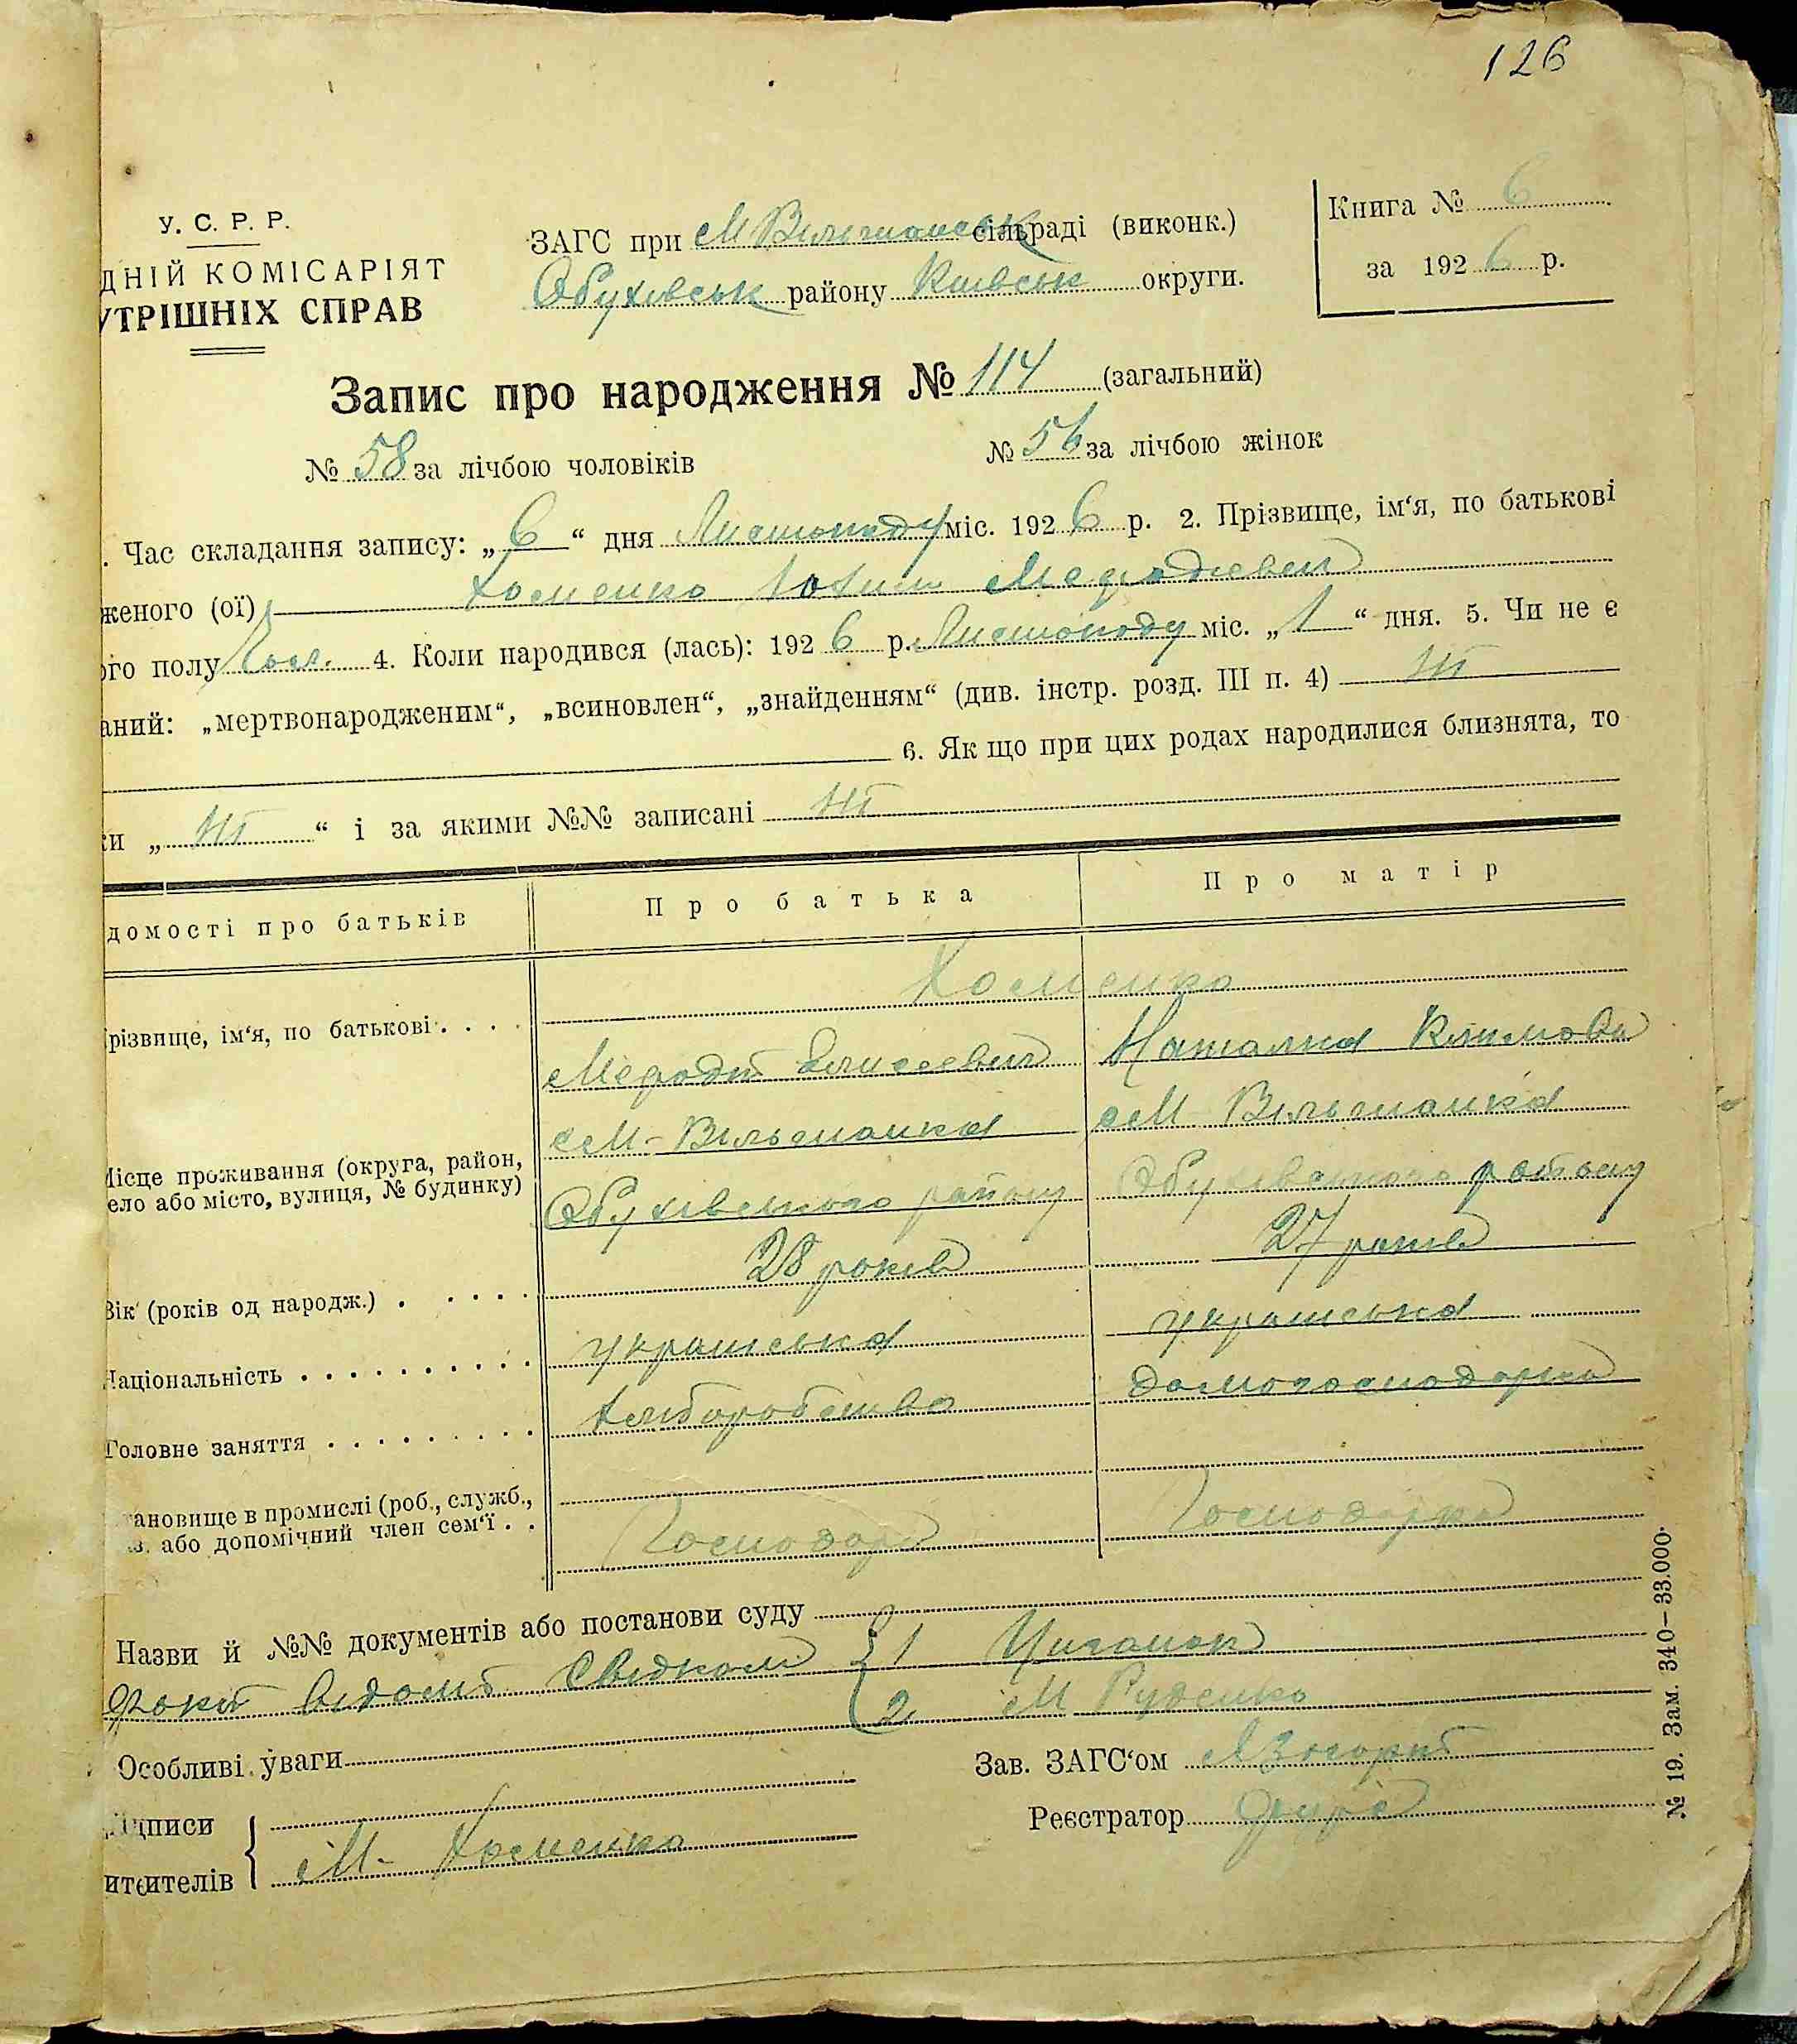 126
У. С. Р. Р.
ДНІЙ КОМІСАРІЯТ
УТРІШНІХ СПРАВ
ЗАГС при М Вільшанськ сільраді (виконк.)
Обухівськ району Київськ округи.
Книга № 6
за 1926 р.
Запис про народження № 114 (загальний)
№ 58 за лічбою чоловіків № 56 за лічбою жінок
. Час складання запису: „ 6 “ дня Листопаду міс. 1926 р. 2. Прізвище, ім‘я, по батькові
женого (ої) Хоменко Мефодієвич
ого полу Чол. 4. Коли народився (лась): 1926 р. Листопаду міс. „ 1 “ дня. 5. Чи не є
аний: „мертвонародженим“, „всиновлен“, „знайденням“ (див. інстр. розд. III п. 4) Ні
6. Як що при цих родах народилися близнята, то
ки „ Ні “ і за якими №№ записані Ні
домості про батьків Про батька Про матір
Хоменко
різвище, ім‘я, по батькові . . . .
Мефодій Елисеевич Наталка Климова
с М-Вільшанка с М Вільшанка
Місце проживання (округа, район,
ело або місто, вулиця, № будинку)
Обухівського району Обухівського району
Вік (років од народж.) . . . . . 28 років 27 років
Національність . . . . . . . . . українська українська
Головне заняття . . . . . . . . . хліборобство домогосподарка
тановище в промислі (роб., служб.,
з. або допомічний член сем‘ї . .
Господар Господарка
Назви й №№ документів або постанови суду
відомі Свідками 1 Циганок
2 М Руденко
Особливі уваги
Зав. ЗАГС‘ом
ідписи
Реєстратор
ителів М- Хоменко
№ 19. Зам. 340–33.000.